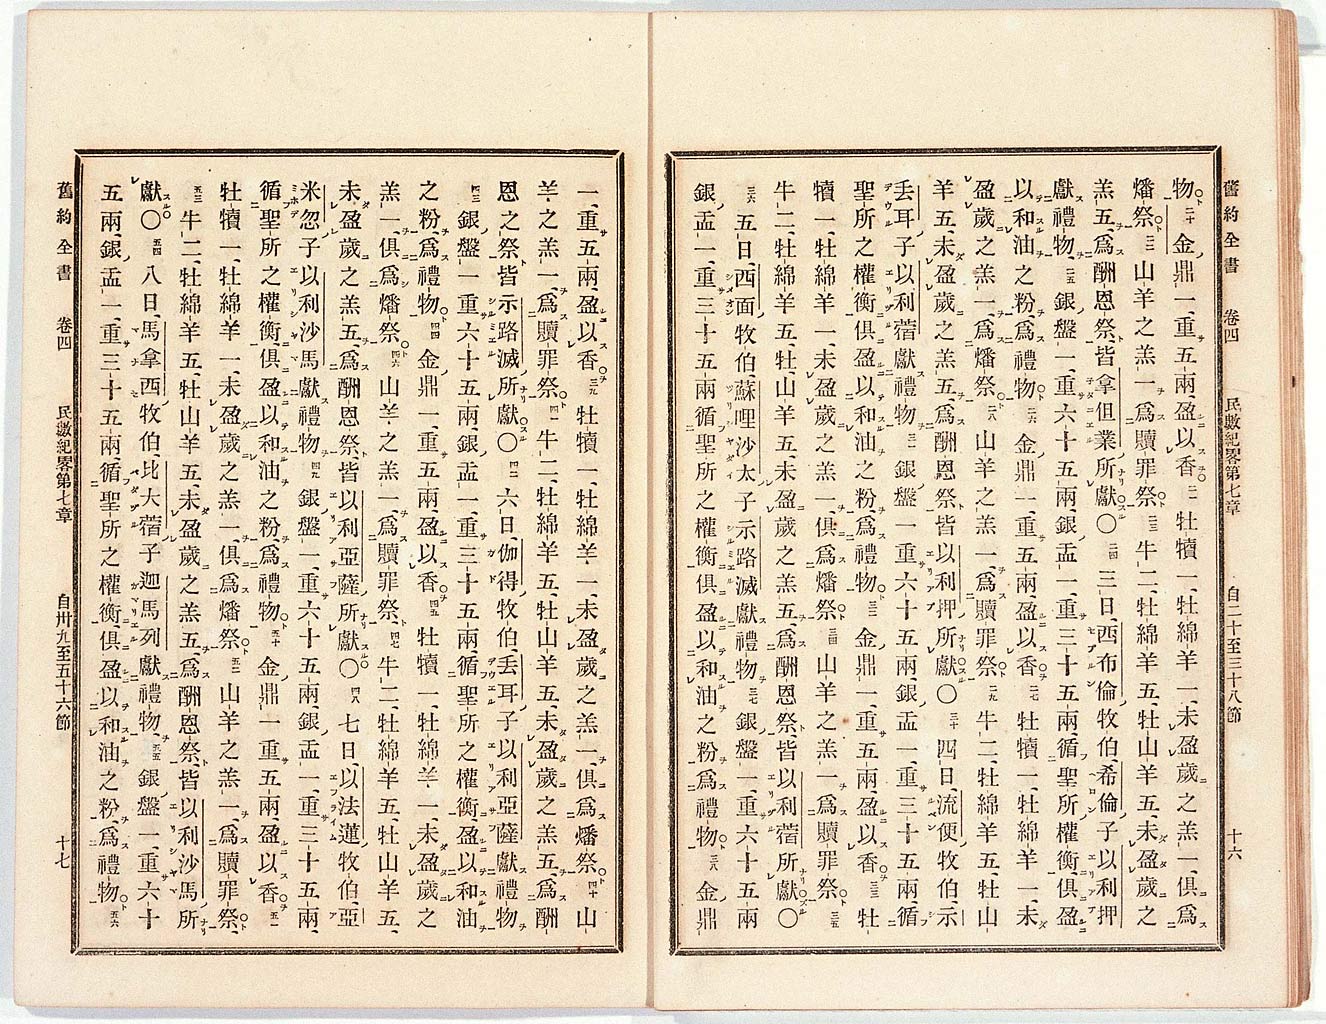 舊約全書 卷四 民數紀畧第七章 自二十至三十八節 十六
物、二十金鼎一、重五兩、盈以香、二一牡犢一、牡綿羊一、未盈歲之羔一、俱爲
燔祭、二二山羊之羔一、爲贖罪祭、二三牛二、牡綿羊五、牡山羊五、未盈歲之
羔五、爲酬恩祭、皆拿但業所獻〇二四三日、西布倫牧伯、希倫子以利押
獻禮物、二五銀盤一、重六十五兩、銀盂一、重三十五兩、循聖所權衡、俱盈
以和油之粉、爲禮物、二六金鼎一、重五兩、盈以香、二七牡犢一、牡綿羊一、未
盈歲之羔一、爲燔祭、二八山羊之羔一、爲贖罪祭、二九牛二、牡綿羊五、牡山
羊五、未盈歲之羔五、爲酬恩祭、皆以利押所獻〇三十四日、流便牧伯、示
丢耳子以利蓿獻禮物、三一銀盤一、重六十五兩、銀盂一、重三十五兩、循
聖所之權衡、俱盈以和油之粉、爲禮物、三二金鼎一、重五兩、盈以香、三三牡
犢一、牡綿羊一、未盈歲之羔一、俱爲燔祭、三四山羊之羔一、爲贖罪祭、三五
牛二、牡綿羊五、牡山羊五、未盈歲之羔五、爲酬恩祭、皆以利蓿所獻〇
三六五日、西面牧伯、蘇哩沙太子示路滅獻禮物、三七銀盤一、重六十五兩
銀盂一、重三十五兩、循聖所之權衡、俱盈以和油之粉、爲禮物、三八金鼎
一、重五兩、盈以香、三九牡犢一、牡綿羊一、未盈歲之羔一、俱爲燔祭、四十山
羊之羔一、爲贖罪祭、四一牛二、牡綿羊五、牡山羊五、未盈歲之羔五、爲酬
恩之祭、皆示路滅所獻〇四二六日、伽得牧伯、丢耳子以利亞薩獻禮物
四三銀盤一重六十五兩、銀盂一、重三十五兩、循聖所之權衡、盈以和油
之粉、爲禮物、四四金鼎一、重五兩、盈以香、四五牡犢一、牡綿羊一、未盈歲之
羔一、俱爲燔祭、四六山羊之羔一、爲贖罪祭、四七牛二、牡綿羊五、牡山羊五、
未盈歲之羔五、爲酬恩祭、皆以利亞薩所獻〇四八七日、以法蓮牧伯、亞
米忽子以利沙馬獻禮物、四九銀盤一、重六十五兩、銀盂一、重三十五兩、
循聖所之權衡、俱盈以和油之粉、爲禮物、五十金鼎一重五兩、盈以香、五一
牡犢一、牡綿羊一、未盈歲之羔一、俱爲燔祭、五二山羊之羔一、爲贖罪祭、
五三牛二、牡綿羊五、牡山羊五、未盈歲之羔五、爲酬恩祭、皆以利沙馬所
獻〇五四八日、馬拿西牧伯、比大蓿子迦馬列獻禮物、五五銀盤一、重六十
五兩、銀盂一、重三十五兩、循聖所之權衡、俱盈以和油之粉、爲禮物、五六
舊約全書 卷四 民數紀畧第七章 自卅九至五十六節 十七